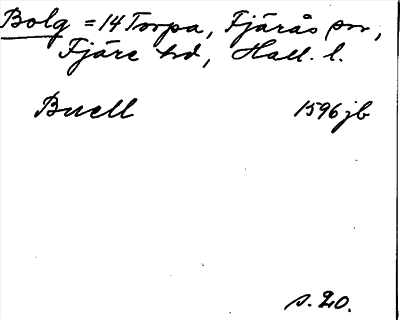 Bolg = 14 Torpa, Fjärås sn,
Fjäre hd, Hall. l.
Buell 1596 jb
s. 20.